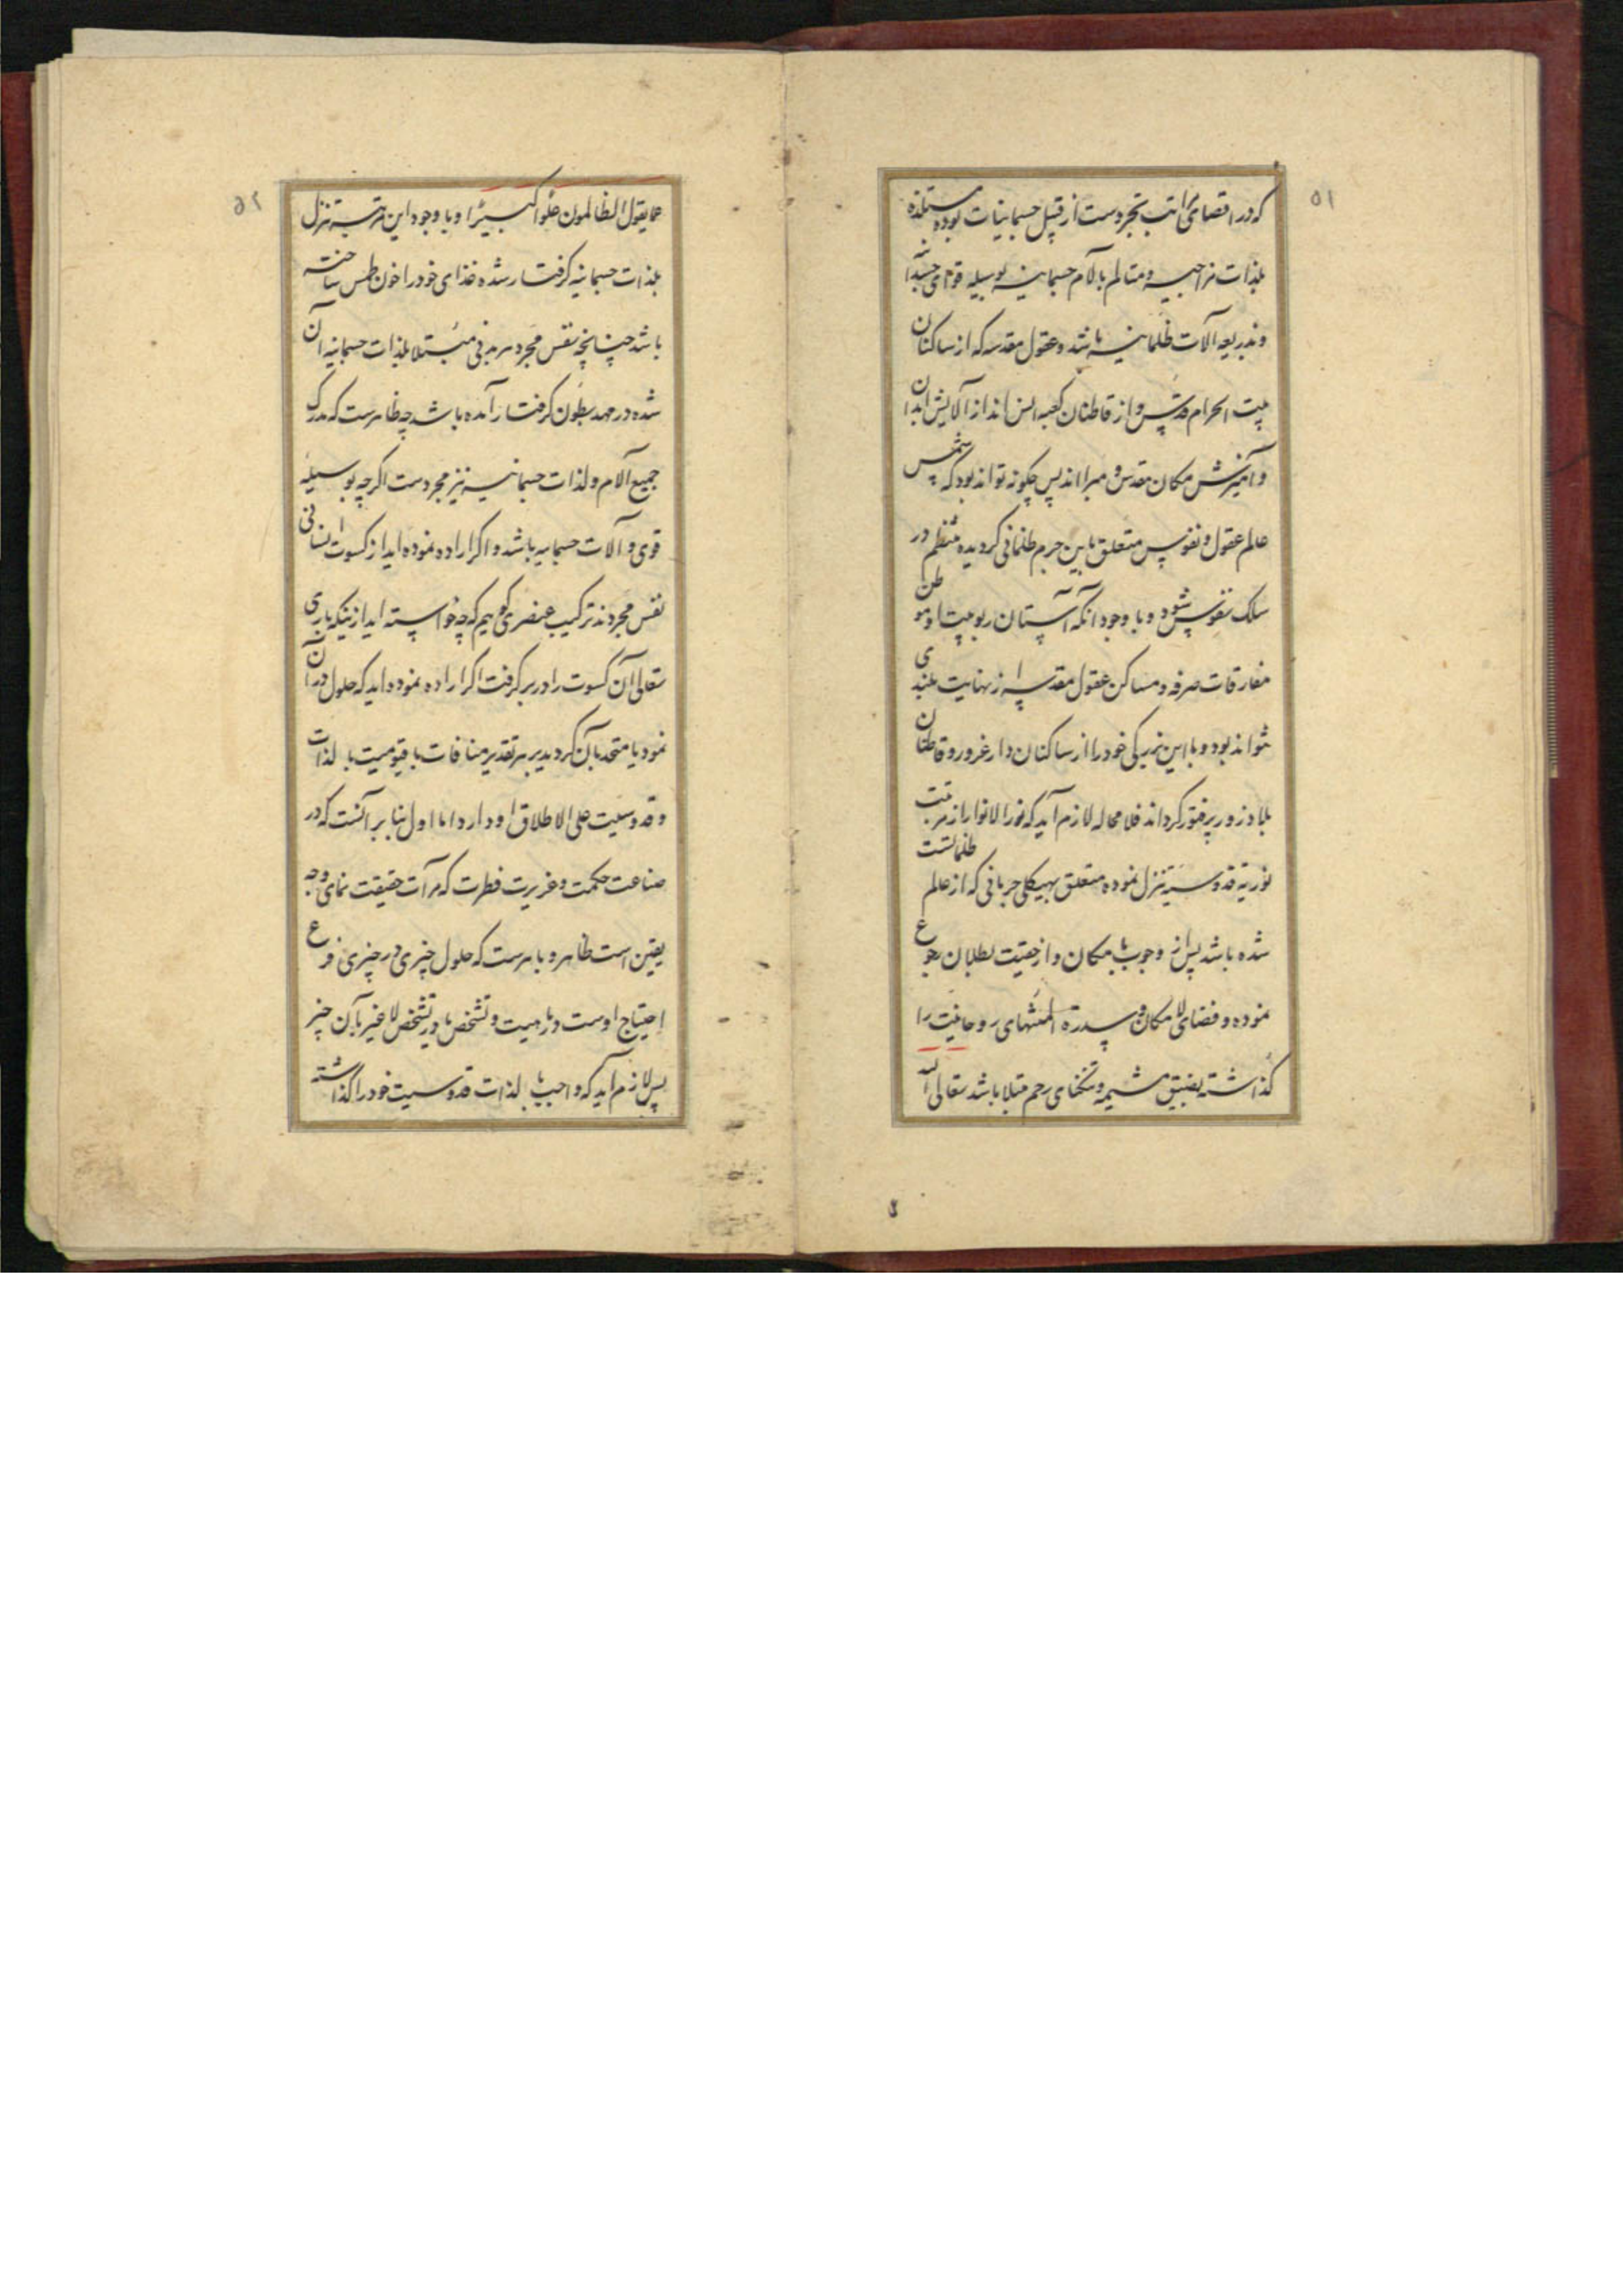 ۵۱
که در اقصای مراتب تجردست از قبیل جسمانیات بوده مستلذه
بلذات مزاجیه و متالم بالآم جسمانیه بوسیله قوای جسدانیه
و بذریعه آلات ظلمانیه باشد و عقول مقدسه که از ساکنان
بیت الحرام قدس و از قاطنان کعبه انس اند از آلایش ابدان
و آمیزش مکان مقدس و مبرا اند پس چکونه تواند بود که شمس
عالم عقول و نفوس متعلق باین جرم ظلمانی کردیده منتظم در
سلک نفوس شود و با وجود آنکه آستان ربوبیت او موطن
مفارقات صرفه و مساکن عقول مقدسه از نهایت بلندی
نتواند بود و با این بزرکی خود را از ساکنان دار غرور و قاطنان
بلاد زور پر فتور کرداند فلا محاله لازم آید که نور الانوار از مرتبت
نوریه قدوسیه تنزل نموده متعلق بهیکلی جرمانی که از عالم ظلمانست
شده باشد پس از وجوب بامکان و از حقیت ببطلان رجوع
نموده و فضای لامکان و سدرة المنتهای روحانیت را
کذاشته بضیق مشیمه و تنکنای رحم مبتلا باشد تعالی الله
۵۲
عما یقول الظالمون علوا کبیرا و با وجود این مرتبه تنزل
بلذات جسمانیه کرفتار شده غذای خود را خون طمس ساخته
باشد چنانچه نفس مجرد هر بدنی مبتلا بلذات جسمانیه آن
شده در مهد بطون کرفتار آمده باشد چه ظاهرست که مدرک
جمیع آلام و لذات جسمانیه نیز مجردست اکرچه بوسیله
قوی و آلات جسمانیه باشد و اکر اراده نموده اید از کسوت انسانی
نفس مجرد نه ترکیب عنصری کوییم که چه خواسته اید از نیکه باری
تعالی آن کسوت را در بر کرفت اکر اراده نموده اید که حلول در آن
نمود یا متحد بآن کردید بر هر تقدیر منافات با قیومیت بالذات
و قدوسیت علی الاطلاق او دارد اما اول بنا بر آنست که در
صناعت حکمت و غریزت فطرت که مرآت حقیقت نمای وجه
یقین است ظاهر و باهرست که حلول چیزی در چیزی فرع
احتیاج اوست در ماهیت و تشخص یا در تشخص لا غیر بآن چیز
پس لازم آید که واجب بالذات قدوسیت خود را کذاشته